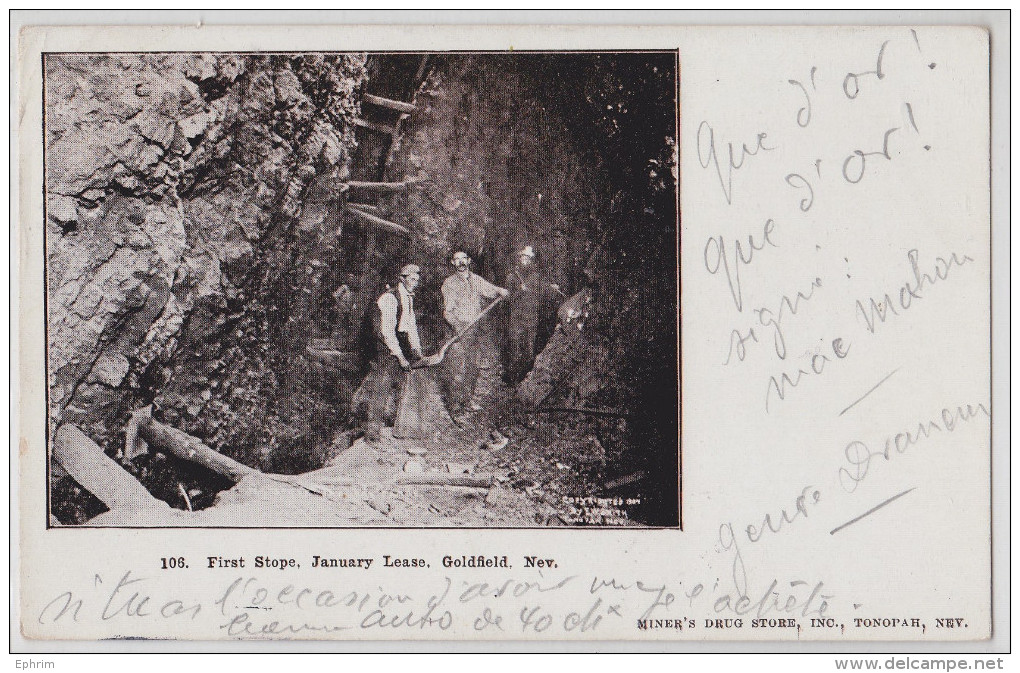 Que d'or !
que d'or !
signé :
mac Mahon
genre
106. First Stope, January Lease, Goldfield, Nev.
si tu as l'occasion d'avoir une
auto de 40 ch je l'achète.
MINER'S DRUG STORE, INC., TONOPAH, NEV.
Ephrim
www.delcampe.net